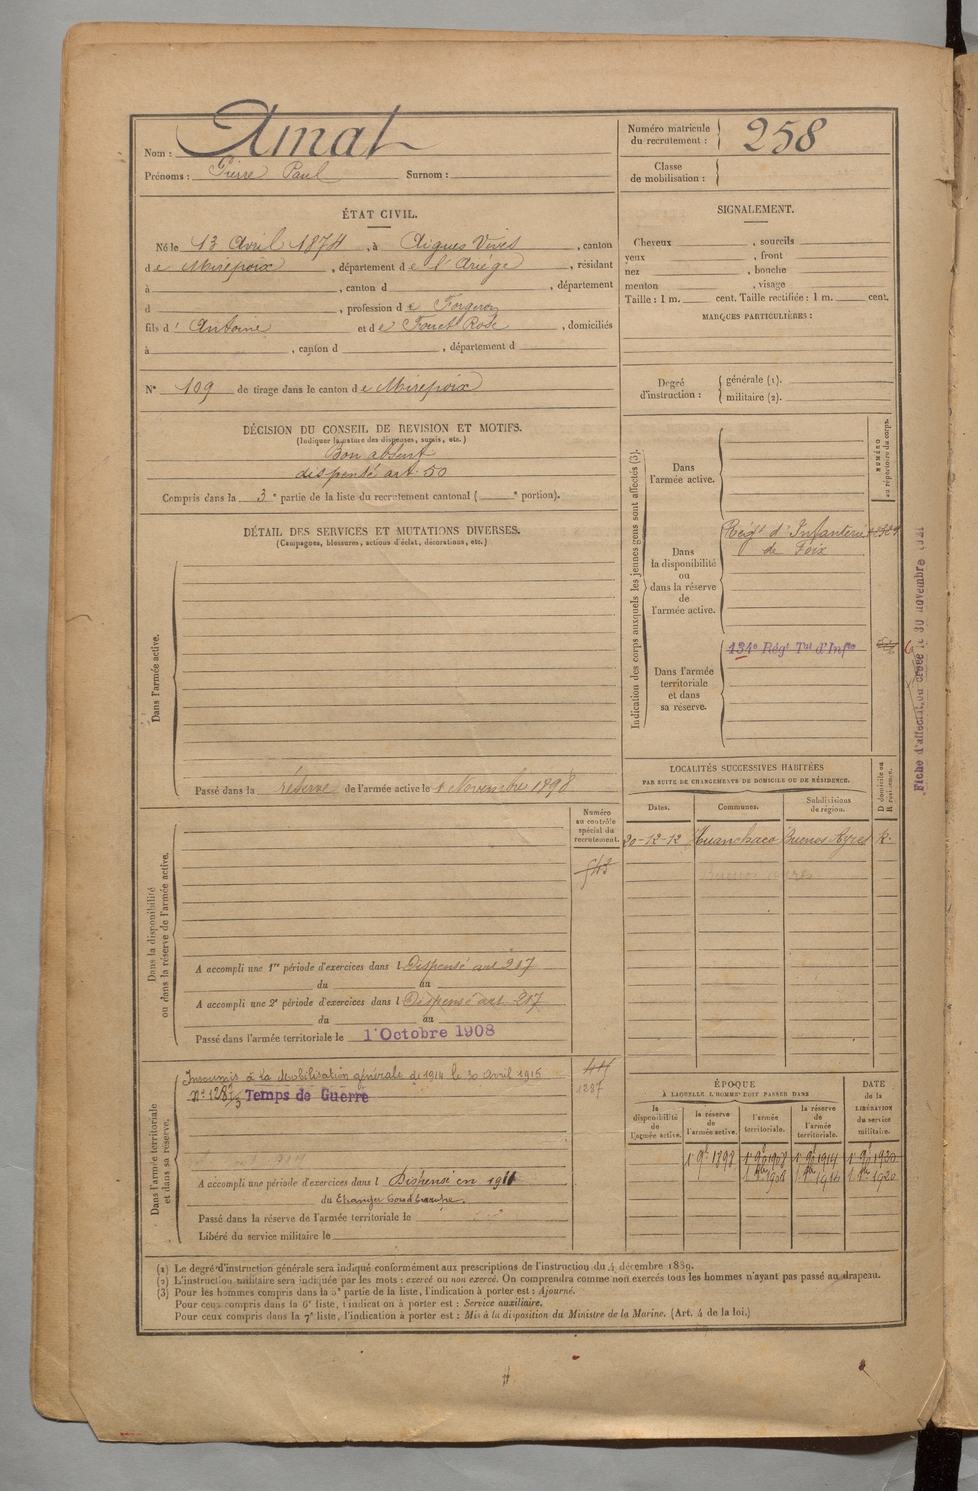 Nom : Amat
Prénoms : Pierre Paul Surnom :
Numéro matricule du recrutement : 258
Classe de mobilisation :
ÉTAT CIVIL.
Né le 13 Avril 1874, à Aigues Vives, canton
de Mirepoix, département de l'Ariège, résidant
à , canton d , département
d , profession de Forgeron
fils d' Antoine et de Rose, domiciliés
à , canton d , département d
N° 109 de tirage dans le canton de Mirepoix
DÉCISION DU CONSEIL DE REVISION ET MOTIFS.
(Indiquer la nature des dispenses, sursis, etc.)
Bon absent
dispensé art. 50
Compris dans la 3e partie de la liste du recrutement cantonal ( e portion).
DÉTAIL DES SERVICES ET MUTATIONS DIVERSES.
(Campagnes, blessures, actions d'éclat, décorations, etc.)
Dans l'armée active.
Passé dans la réserve de l'armée active le 1 Novembre 1898
Numéro
au contrôle
spécial du
recrutement.
543
Dans la disponibilité
ou dans la réserve de l'armée active.
A accompli une 1re période d'exercices dans l Dispensé art 217
du au
A accompli une 2e période d'exercices dans l Dispensé art 217
du au
Passé dans l'armée territoriale le 1 Octobre 1908
Dans l'armée territoriale
et dans sa réserve.
Insoumis à la Mobilisation générale de 1914 le 30 Avril 1915
Temps de Guerre
1287
A accompli une période d'exercices dans l Dispensé en 1911
du Etranger
Passé dans la réserve de l'armée territoriale le
Libéré du service militaire le
SIGNALEMENT.
Cheveux , sourcils
yeux , front
nez , bouche
menton , visage
Taille : 1 m. cent. Taille rectifiée : 1 m. cent.
MARQUES PARTICULIÈRES :
Degré
d'instruction :
générale (1).
militaire (2).
Indication des corps auxquels les jeunes gens sont affectés (3).
NUMÉRO
au répertoire du corps.
Dans
l'armée active.
Dans
la disponibilité
ou
dans la réserve
de
l'armée active.
Régt d'Infanterie
de Foix
Dans l'armée
territoriale
et dans
sa réserve.
134e Régt Tal d'Infie
Fiche d'affectation créée le 30 novembre 1921
LOCALITÉS SUCCESSIVES HABITÉES
PAR SUITE DE CHANGEMENTS DE DOMICILE OU DE RÉSIDENCE.
Dates.
Communes.
Subdivisions
de région.
D domicile ou
R résidence.
20-12-12 Huanchaco Buenos Ayres R.
Buenos Ayres
ÉPOQUE
À LAQUELLE L'HOMME DOIT PASSER DANS
DATE
de la
LIBÉRATION
du service
militaire.
la
disponibilité
de
l'armée active.
la réserve
de
l'armée active.
l'armée
territoriale.
la réserve
de
l'armée
territoriale.
1 9bre 1898 1 9b 1908 1 9b 1914 1 9b 1920
1 8bre 1908 1 8bre 1914 1 8bre 1920
(1) Le degré d'instruction générale sera indiqué conformément aux prescriptions de l'instruction du 4 décembre 1889.
(2) L'instruction militaire sera indiquée par les mots : exercé ou non exercé. On comprendra comme non exercés tous les hommes n'ayant pas passé au drapeau.
(3) Pour les hommes compris dans la 5e partie de la liste, l'indication à porter est : Ajourné.
Pour ceux compris dans la 6e liste, l'indication à porter est : Service auxiliaire.
Pour ceux compris dans la 7e liste, l'indication à porter est : Mis à la disposition du Ministre de la Marine. (Art. 4 de la loi.)